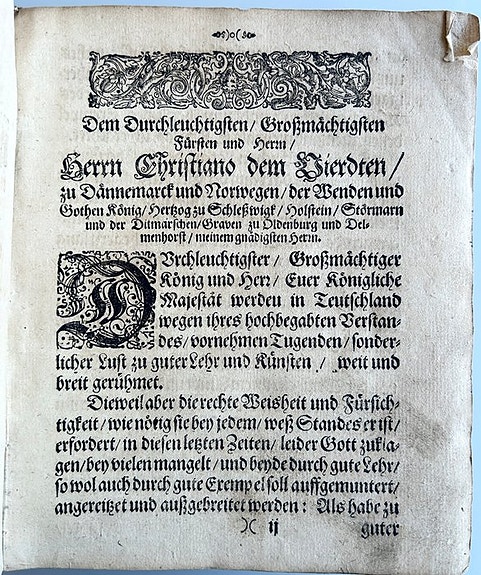 Dem Durchleuchtigsten / Großmächtigsten
Fürsten und Herrn /
Herrn Christiano dem Vierdten /
zu Dännemarck und Norwegen / der Wenden und
Gothen König / Hertzog zu Schleßwigk / Holstein / Störmarn
und der Ditmarschen / Graven zu Oldenburg und Del-
menhorst / meinem gnädigsten Herrn.
DUrchleuchtigster / Großmächtiger
König und Herr / Euer Königliche
Majestät werden in Teutschland
wegen ihres hochbegabten Verstan-
des / vornehmen Tugenden / sonder-
licher Lust zu guter Lehr und Künsten / weit und
breit gerühmet.
Dieweil aber die rechte Weisheit und Fürsich-
tigkeit / wie nötig sie bey jedem / weß Standes er ist /
erfordert / in diesen letzten Zeiten / leider Gott zukla-
gen / bey vielen mangelt / und beyde durch gute Lehr /
so wol auch durch gute Exempel soll auffgemuntert /
angereitzet und außgebreitet werden : Als habe zu
)( ij guter